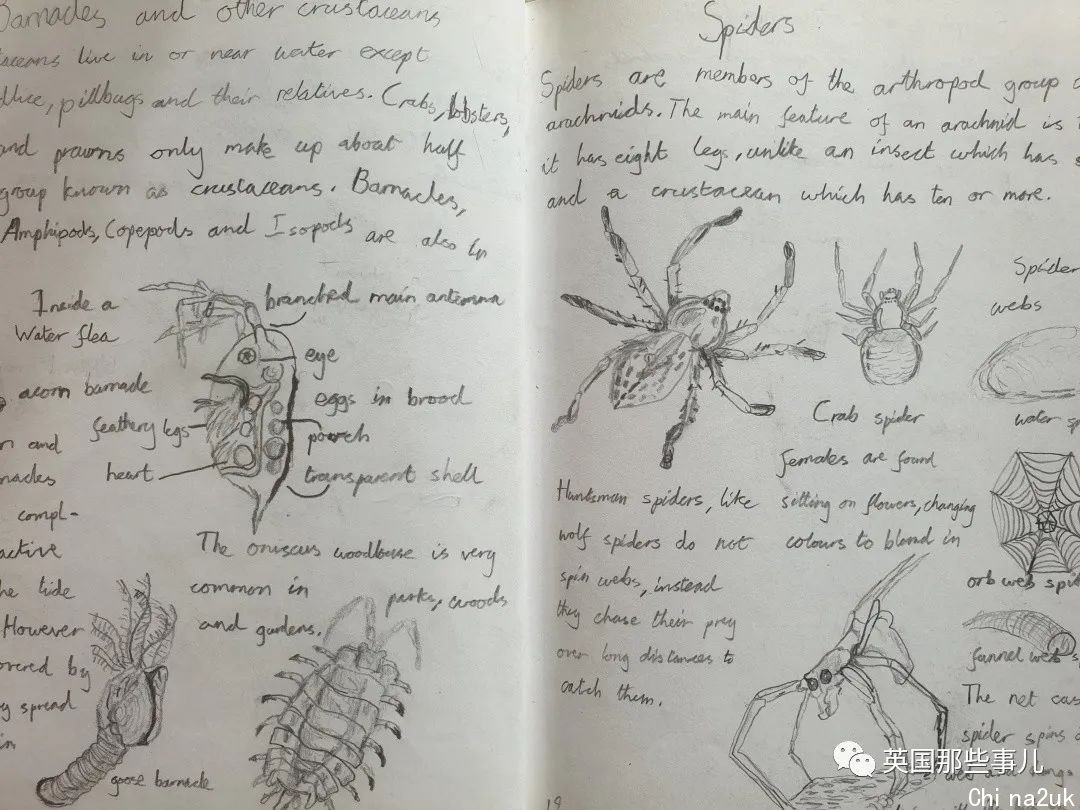 Barnacles and other crustaceans
taceans live in or near water except
dlice, pillbugs and their relatives. Crabs, lobsters,
and prawns only make up about half
group known as crustaceans. Barnacles,
Amphipods, Copepods and Isopods are also in
Inside a
Water flea
branched main antenna
eye
eggs in brood
pouch
transparent shell
feathery legs
heart
acorn barnacle
and
nacles
compl-
active
tide
However
overed by
spread
in
The oniscus woodlouse is very
common in parks, woods
and gardens.
goose barnacle
18
Spiders
Spiders are members of the arthropod group
arachnids. The main feature of an arachnid is
it has eight legs, unlike an insect which has
and a crustacean which has ten or more.
Spider
webs
water
Crab spider
females are found
sitting on flowers, changing
colours to blend in
Huntsman spiders, like
wolf spiders do not
spin webs, instead
they chase their prey
over long distances to
catch them.
orb web
funnel web
The net
spider spins
英国那些事儿
Chi na2uk